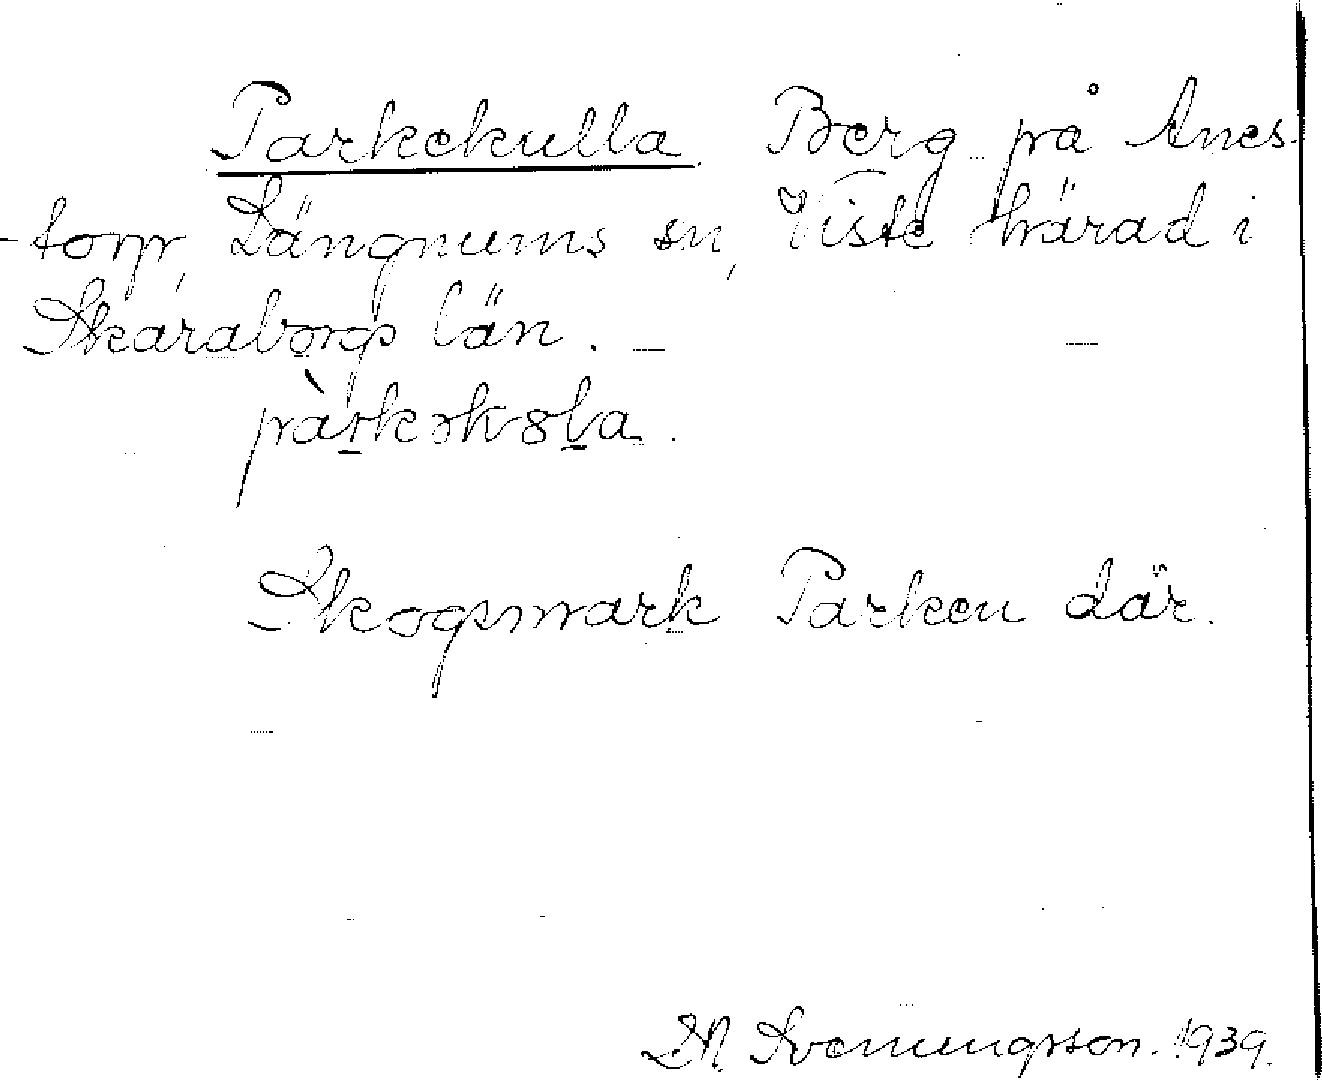 Parkekulla. Berg på Anes-
-torp, Längnums sn, Viste härad i
Skaraborgs län. —
pàrkəkȣla.
Skogsmark Parken där.
Svenungsson. 1939.